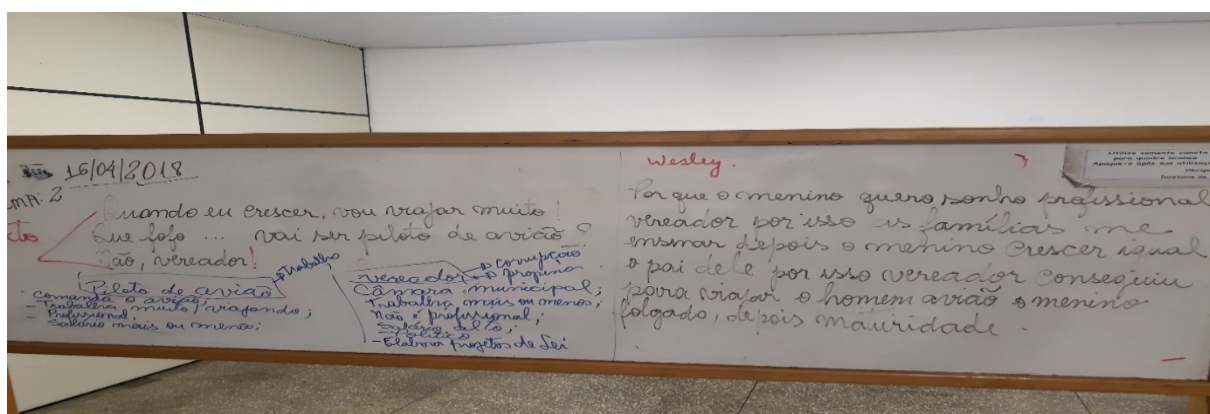 16/04/2018
2
Quando eu crescer, vou viajar muito!
Que fofo ... vai ser piloto de avião?
Não, vereador!
trabalho
Piloto de avião
comanda o avião;
- Trabalha muito viajando;
- Profissional;
- Salário mais ou menos;
vereador
corrupção
propina
Câmara municipal;
trabalha mais ou menos;
não é profissional;
Salário alto;
Político
- Elabora projetos de Lei
Wesley.
Por que o menino quero sonho profissional
vereador por isso as famílias me
ensinar depois o menino crescer igual
o pai dele por isso vereador conseguiu
para viajar o homem avião o menino
folgado, depois mauridade.
Utilize somente caneta
para quadro branco
Apague-o após sua utilização
Diretoria de